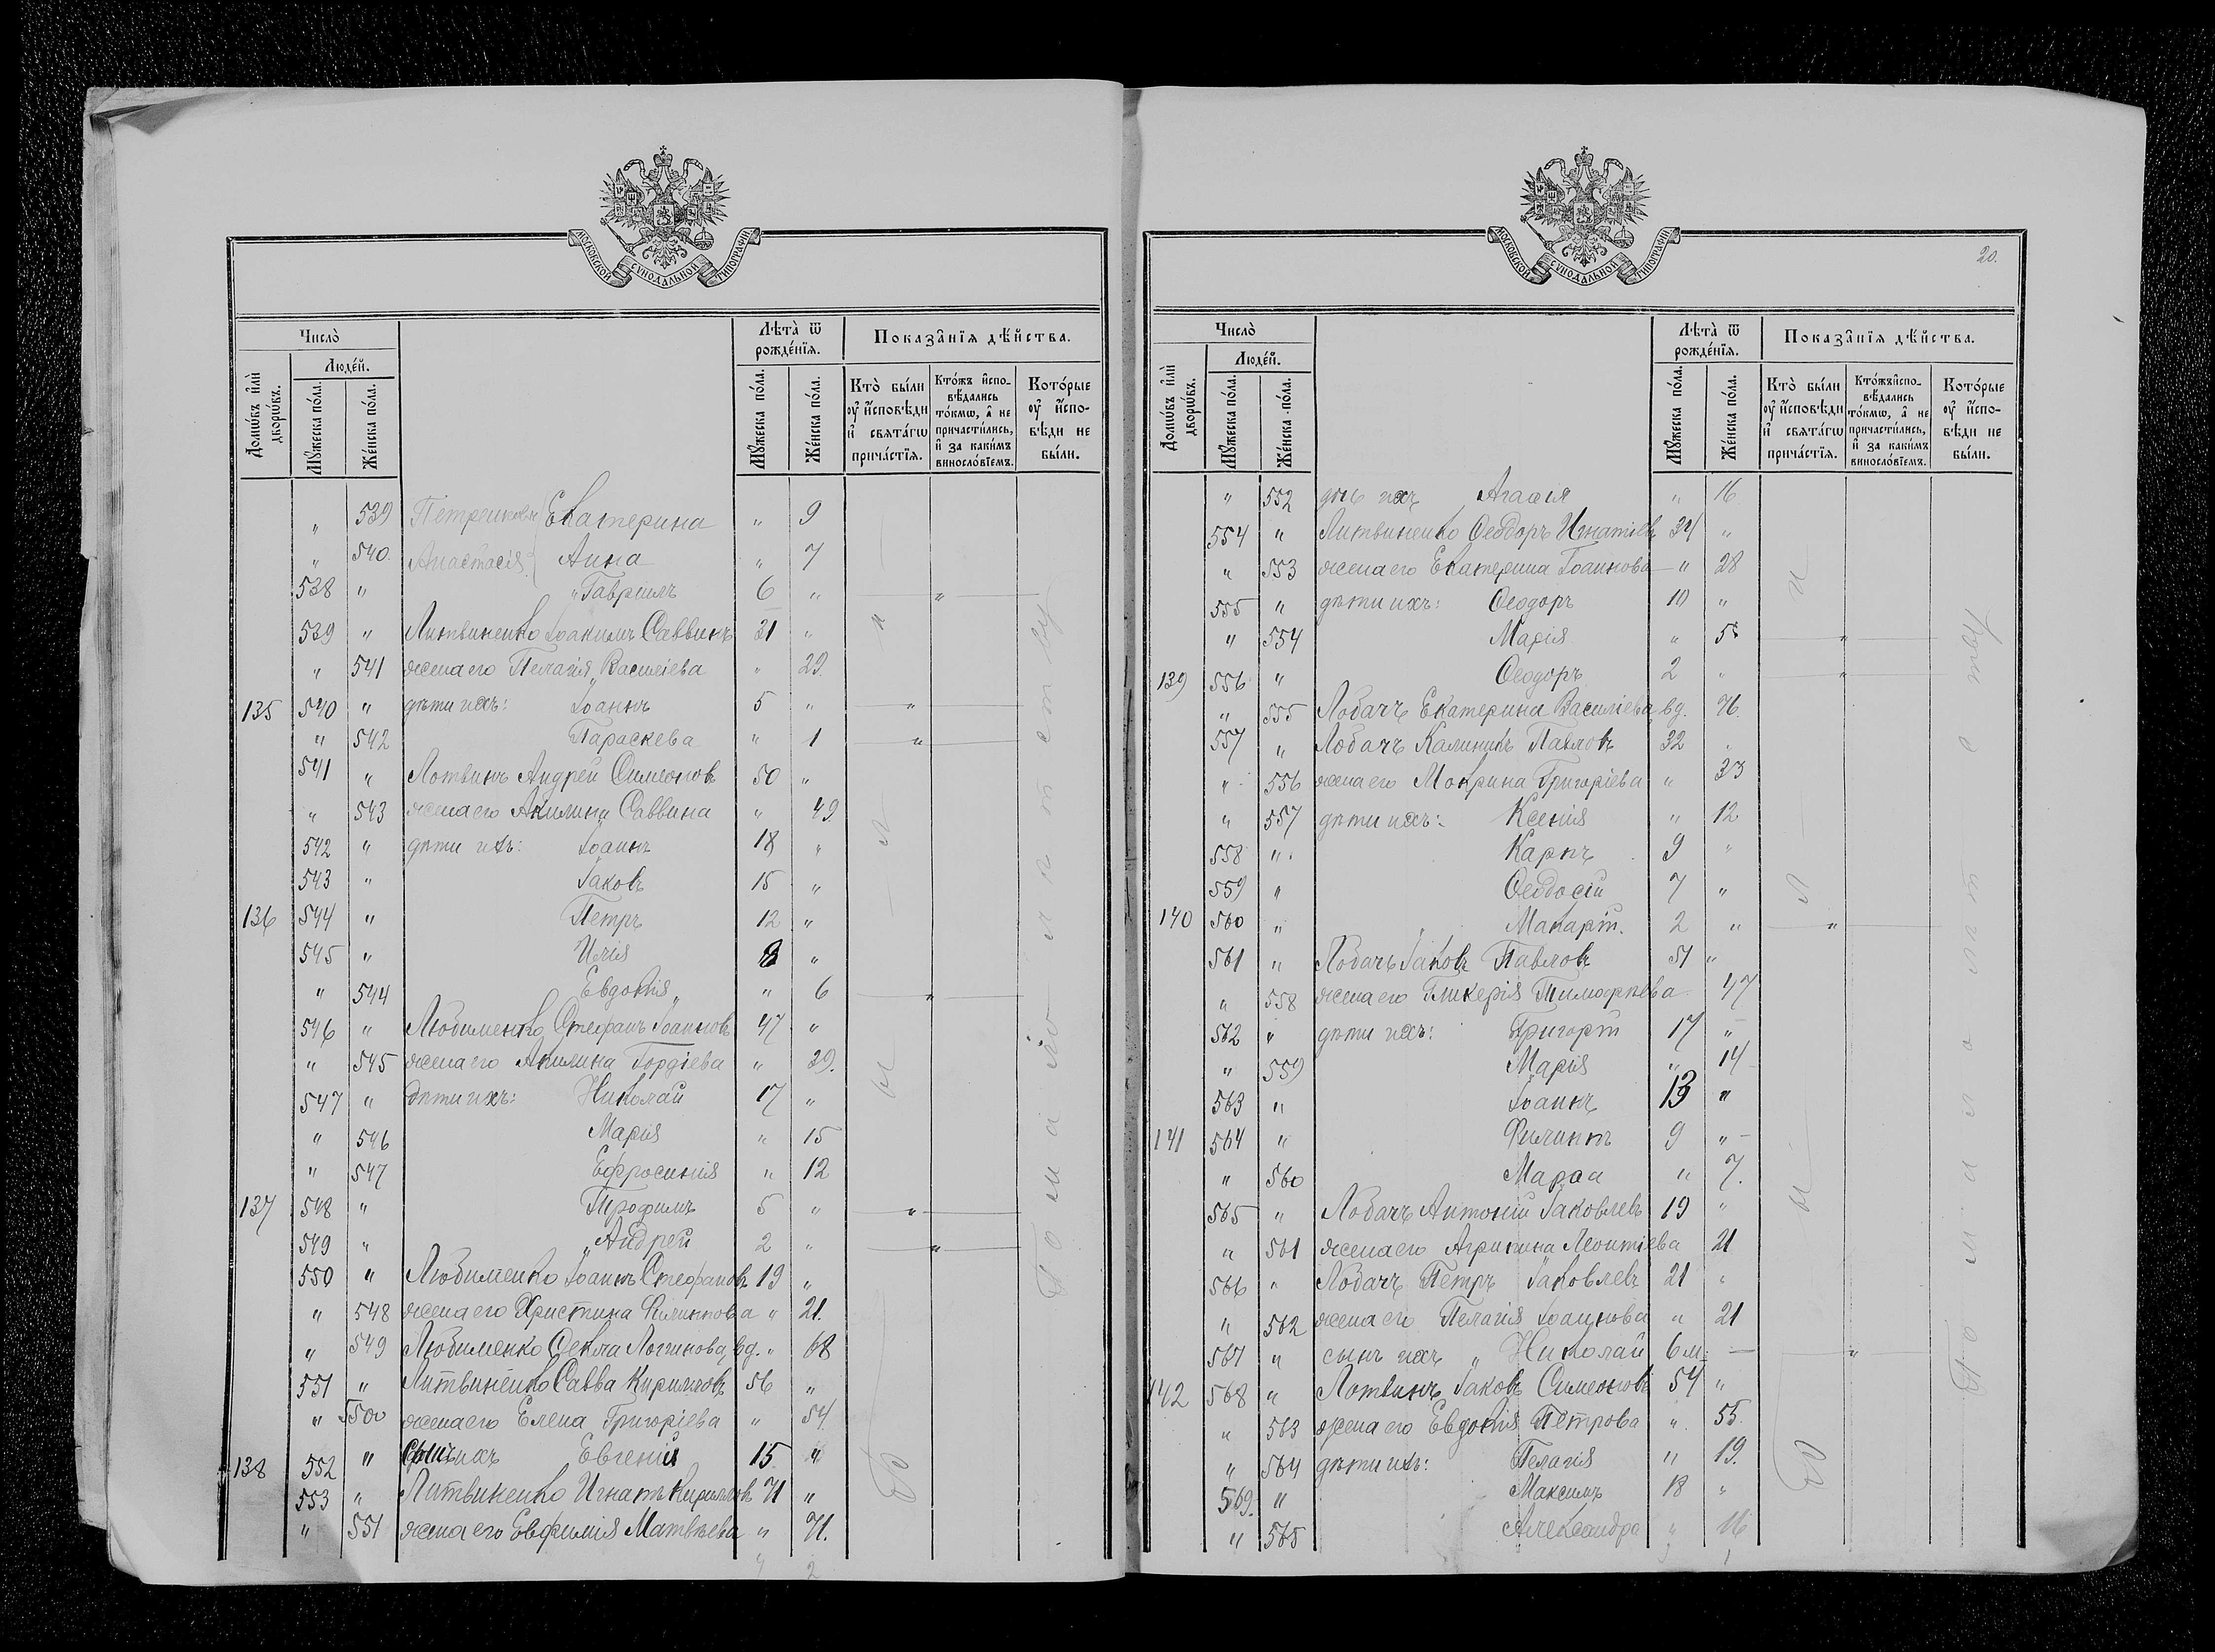 МОСКОВСКОЙ СѴНОДАЛЬНОЙ ТИПОГРАФІИ
Число̀
Людéй.
Домѡ́въ и҆лѝ дворѡ́въ.
Мꙋ́жеска по́ла.
Же́нска по́ла.
Лѣта̀ ѿ рожде́нїѧ.
Мꙋ́жеска по́ла.
Же́нска по́ла.
Показа̑нїѧ дѣ́йства.
Кто̀ бы́ли оу҆ и҆сповѣди и҆ свѧта́гѡ прича́стїѧ.
Кто́жъ и҆сповѣ́дались то́кмѡ, а҆ не причасти́лись, и҆ за каки́мъ винослóвїемъ.
Кото́рые оу҆ и҆сповѣди не бы́ли.
" 539 Петренковы Екатерина " 9
" 540. Анастасія Анна " 7
538 " Гавріилъ 6 " "
539 " Литвиненко Іоакимъ Саввинъ 31 "
" 541 жена его Пелагія Василіева " 29.
135 540 " дѣти ихъ: Іоаннъ 5 " "
" 542 Параскева " 1 "
541 " Лотвинъ Андрей Симеоновъ 50 "
" 543 жена его Акилина Саввина " 49
542 " дѣти ихъ: Іоаннъ 18 "
543 " Іаковъ 15 "
136 544 " Петръ 12 "
545 " Илія 8 "
" 544 Евдокія " 6 "
546 " Любименко Стефанъ Іоанновъ 47 "
" 545 жена его Акилина Гордіева " 39.
547 " дѣти ихъ: Николай 17 "
" 546 Марія " 15
" 547 Ефросинія " 12
137 548 " Трофимъ 5 " "
549 " Андрей 2 " "
550 " Любименко Іоаннъ Стефановъ 19 "
" 548 жена его Христина Филиппова " 21.
" 549 Любименко Ѳекла Логгинова, вд. " 68
551 " Литвиненко Савва Кирилловъ 56 "
" 550 жена его Елена Григоріева " 54.
138 552 " сынъ ихъ Евгеній 15 "
553 " Литвиненко Игнатъ Кирилловъ 71 "
" 551 жена его Евфимія Матвѣева " 71.
Были
По малолѣтству
МОСКОВСКОЙ СѴНОДАЛЬНОЙ ТИПОГРАФІИ
20.
Число̀
Людéй.
Домѡ́въ и҆лѝ дворѡ́въ.
Мꙋ́жеска по́ла.
Же́нска по́ла.
Лѣта̀ ѿ рожде́нїѧ.
Мꙋ́жеска по́ла.
Же́нска по́ла.
Показа̑нїѧ дѣ́йства.
Кто̀ бы́ли оу҆ и҆сповѣди и҆ свѧта́гѡ прича́стїѧ.
Кто́жъ и҆сповѣ́дались то́кмѡ, а҆ не причасти́лись, и҆ за каки́мъ винослóвїемъ.
Кото́рые оу҆ и҆сповѣди не бы́ли.
" 552 дочь ихъ Агаѳія " 16
554 " Литвиненко Ѳеодоръ Игнатіевъ 34 "
" 553 жена его Екатерина Іоаннова " 28
555 " дѣти ихъ: Ѳеодоръ 10 "
" 554 Марія " 5 "
139 556 " Ѳеодоръ 2 " "
" 555 Лобачъ Екатерина Василіева вд. 76.
557 " Лобачъ Калиникъ Павловъ 32 "
" 556 жена его Мокрина Григоріева " 33
" 557 дѣти ихъ: Ксенія " 12
558 " Карпъ 9 "
559 " Ѳеодосій 7 "
140 560 " Макарій. 2 " "
561 " Лобачъ Іаковъ Павловъ 51 "
" 558 жена его Гликерія Тимоѳеева 47
562 " дѣти ихъ: Григорій 17 "
" 559 Марія " 14
563 " Іоаннъ 13 "
141 564 " Филиппъ 9 "
" 560 Марѳа " 7.
565 " Лобачъ Антоній Іаковлевъ 19 "
" 561 жена его Агрипина Леонтіева 21
566 " Лобачъ Петръ Іаковлевъ 21 "
" 562 жена его Пелагія Іоаннова " 21
567 " сынъ ихъ " Николай 6 м. "
142 568 " Лотвинъ Іаковъ Симеоновъ 54 "
" 563 жена его Евдокія Петрова " 55.
" 564 дѣти ихъ: Пелагія " 19.
569. " Максимъ 18 "
" 565 Александра " 16
Были
По малолѣтству